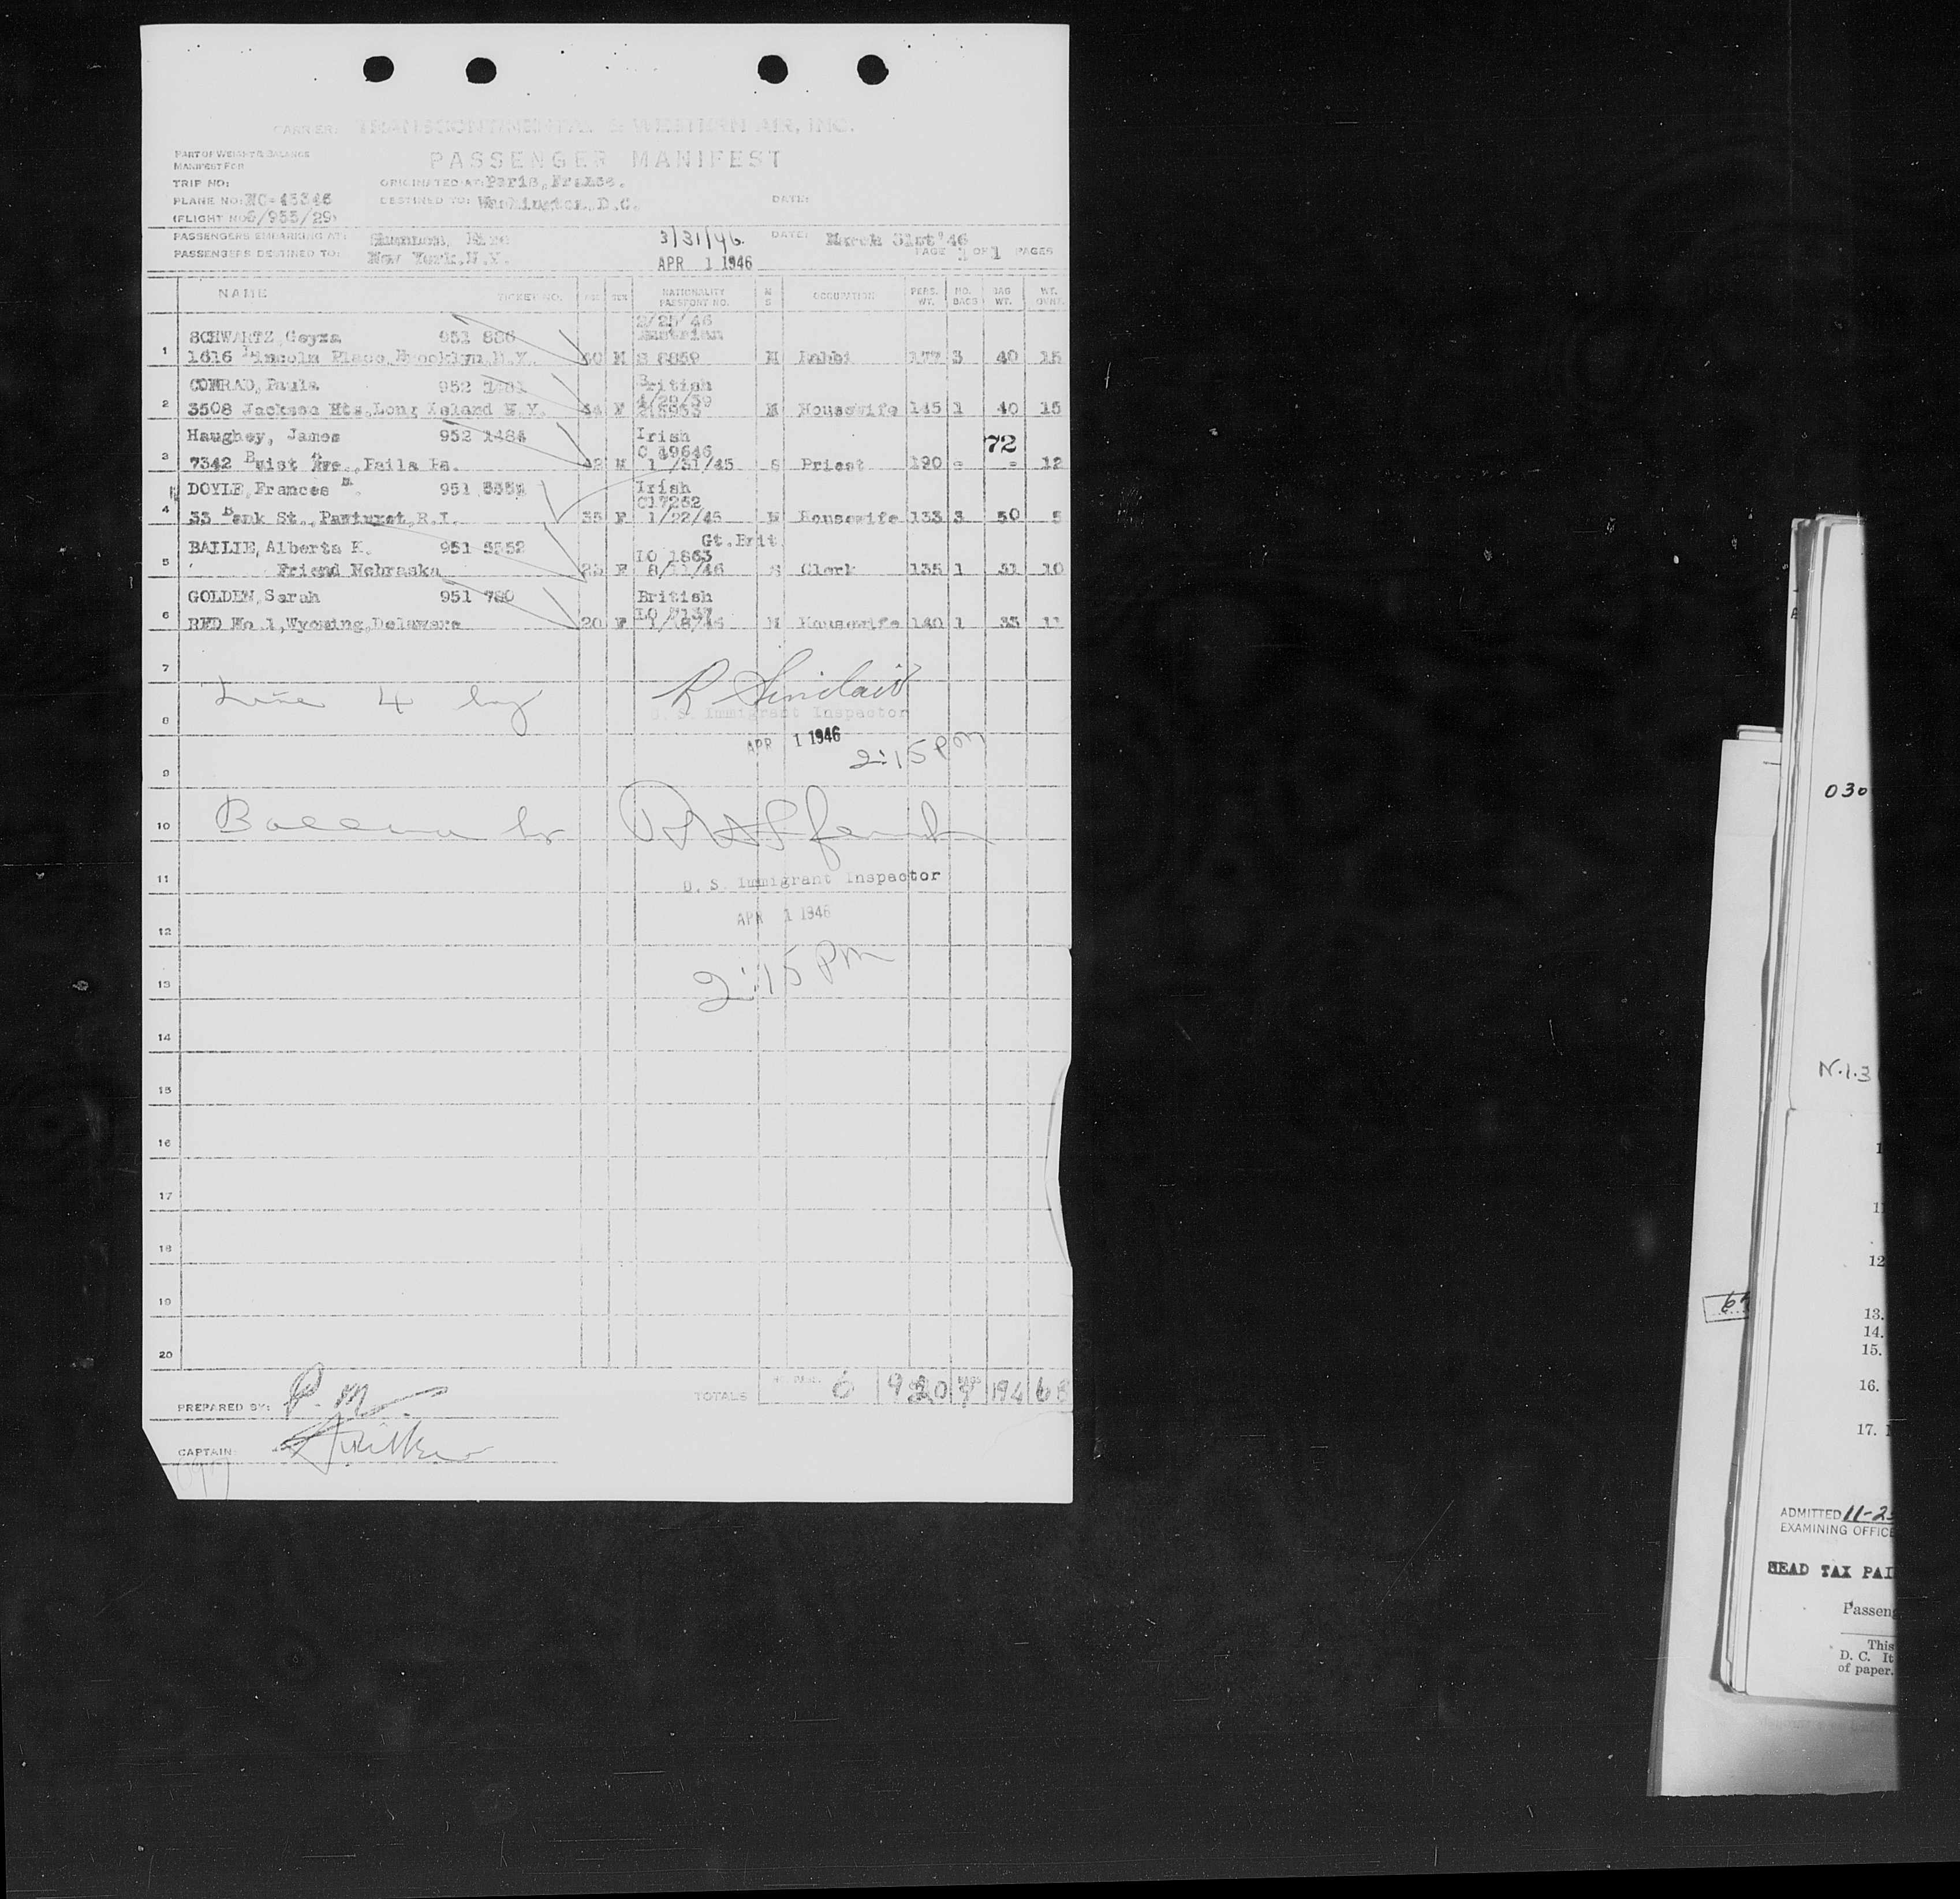 CARRIER: TRANSCONTINENTAL & WESTERN AIR, INC.
PART OF WEIGHT & BALANCE
MANIFEST FOR
PASSENGER MANIFEST
TRIP NO:
ORIGINATED AT: Paris, France.
PLANE NO: NC-45346
DESTINED TO: Washington, D.C.
DATE:
(FLIGHT NO 6/933/29)
PASSENGERS EMBARKING AT: Shannon, Eire
3/31/46.
DATE: March 31st'46
PASSENGERS DESTINED TO: New York.N.Y.
APR 1 1946
PAGE 1 OF 1 PAGES
NAME TICKET NO. AGE SEX NATIONALITY PASSPORT NO. M S OCCUPATION PERS. WT. NO. BAGS BAG WT. WT. OVHT.
2/25/46
SCHWARTZ, Geyza 951 886 Austrian
1 1616 Lincoln Place, Brooklyn, N.Y. M S 8859 M Rabbi 177 3 40 15
CONRAD, Paula 952 British
4/29/39
2 3508 Jackson Hts, Long Island N.Y. 34 F M Housewife 145 1 40 15
Haughey, James 952 1484 Irish
72
C 49646
3 7342 Ave., Paila Pa. 42 M 1 /31/45 S Priest 190 - - 12
DOYLE, Frances M. 951 Irish
C17252
4 33 Bank St., Pawtuxet, R.I. 35 F 1/22/45 M Housewife 133 3 50 5
Gt.Brit.
BAILIE, Alberta K. 951 5552
IO 1863
5 Friend Nebraska 25 F 8/11/46 S Clerk 135 1 31 10
GOLDEN, Sarah 951 780 British
IO 7137
6 RED No 1, Wyoming, Delaware 20 F M Housewife 140 1 33 11
7
Line 4 by R Sinclair
8
U. S. Immigrant Inspector
APR 1 1946
2:15 PM
9
10
11
U. S. Immigrant Inspector
APR 1 1946
12
2:15 PM
13
14
15
16
17
18
19
20
TOTALS 6 920 9 194 68
PREPARED BY: P. M
CAPTAIN:
030
N.1.3
12
13.
14.
15.
16.
17.
ADMITTED 11-2
EXAMINING OFFICE
HEAD TAX PAI
Passen
This
D. C. It
of paper.